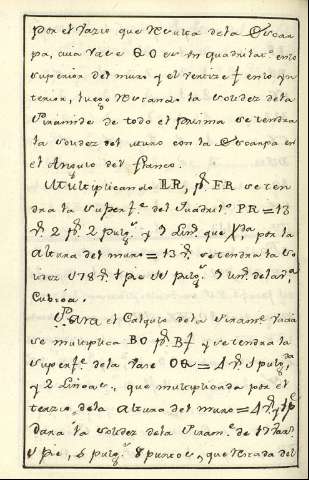 por el vazio que resulta de la Escar
pa, cuia vase QO es un quadrilat.º en lo
superior del muro y el vertize f en lo yn
terior, luego restando la solidez de la
Piramide de todo el Prisma se tendra
la solidez del muro con la Escarpa en
el Angulo del flanco.
Multiplicando IR, p.r FR se ten
dra la superf.e del Quadril.º PR = 13
2 p.s 2 pulg.s y 3 Lin.s que por la
altura del muro = 13 se tendra la so
lidez 178 1 pie pulg.s 3 de la
Cubica.
Para el Calculo de la Piram.e vacia
se multiplica BO p.r Bf y se tendra la
superf.e de la vase OQ = 4 pulg.das
y 2 Lineas, que multiplicada por el
terzio de la altura del muro = 4 y 1 p.e
Dara la solidez de la Piram.e de 17
1 pie, 6 pulg.s 8 puntos, que restada del